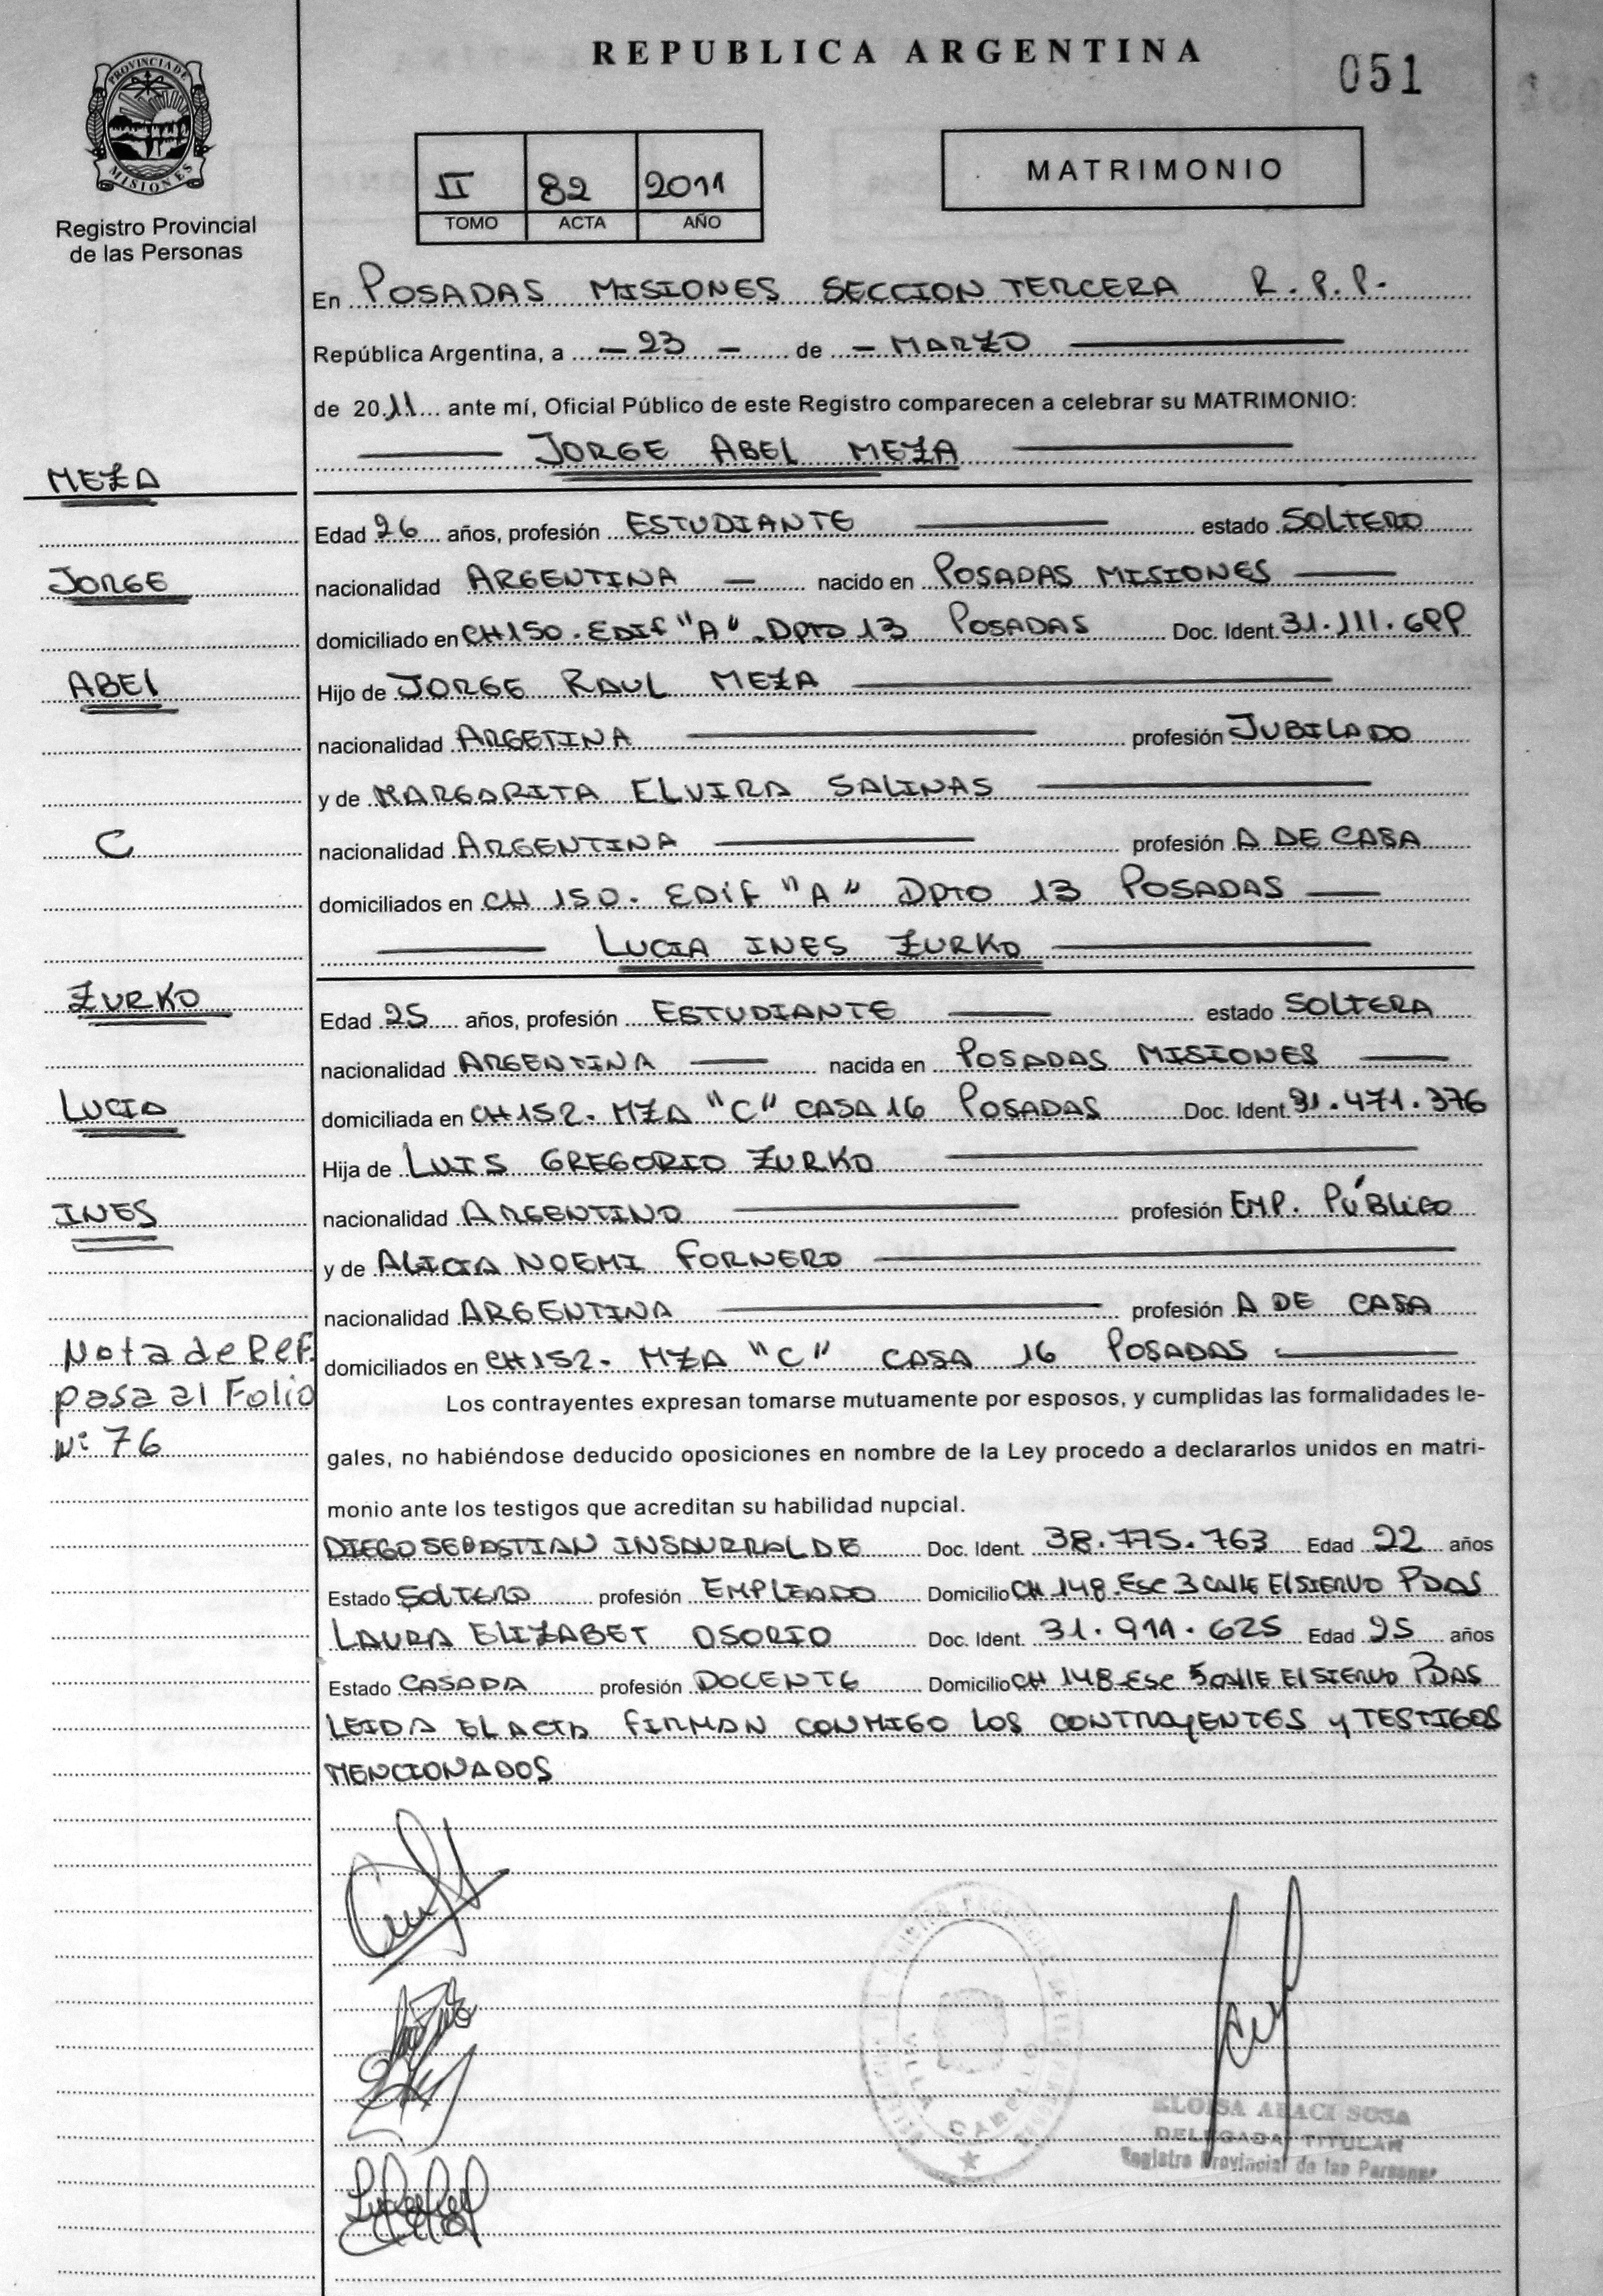 REPUBLICA ARGENTINA
051
PROVINCIA DE
MISIONES
Registro Provincial
de las Personas
II 82 2011
TOMO ACTA AÑO
MATRIMONIO
En POSADAS MISIONES SECCION TERCERA R.P.P.
República Argentina, a – 23 – de – MARZO
de 2011 ante mí, Oficial Público de este Registro comparecen a celebrar su MATRIMONIO:
JORGE ABEL MEZA
MEZA
Edad 26 años, profesión ESTUDIANTE estado SOLTERO
JORGE
nacionalidad ARGENTINA – nacido en POSADAS MISIONES
domiciliado en CH 150. EDIF "A". DPTO 13 POSADAS Doc. Ident. 31.111.699
ABEL
Hijo de JORGE RAUL MEZA
nacionalidad ARGETINA profesión JUBILADO
y de MARGARITA ELVIRA SALINAS
C
nacionalidad ARGENTINA profesión A DE CASA
domiciliados en CH 150. EDIF "A" DPTO 13 POSADAS
LUCIA INES ZURKO
ZURKO
Edad 25 años, profesión ESTUDIANTE estado SOLTERA
nacionalidad ARGENTINA nacida en POSADAS MISIONES
LUCIA
domiciliada en CH 152. MZA "C" CASA 16 POSADAS Doc. Ident. 31.471.376
Hija de LUIS GREGORIO ZURKO
INES
nacionalidad ARGENTINO profesión EMP. PÚBLICO
y de ALICIA NOEMI FORNERO
nacionalidad ARGENTINA profesión A DE CASA
Nota de Ref.
pasa al Folio
Nº 76
domiciliados en CH 152. MZA "C" CASA 16 POSADAS
Los contrayentes expresan tomarse mutuamente por esposos, y cumplidas las formalidades le-
gales, no habiéndose deducido oposiciones en nombre de la Ley procedo a declararlos unidos en matri-
monio ante los testigos que acreditan su habilidad nupcial.
DIEGO SEBASTIAN INSAURRALDE Doc. Ident. 38.775.763 Edad 22 años
Estado SOLTERO profesión EMPLEADO Domicilio CH 148. ESC 3 CALLE El SIERVO PDAS
LAURA ELIZABET OSORIO Doc. Ident. 31.911.625 Edad 25 años
Estado CASADA profesión DOCENTE Domicilio CH 148 ESC 5 CALLE El SIERVO PDAS
LEIDA EL ACTA FIRMAN CONMIGO LOS CONTRAYENTES y TESTIGOS
MENCIONADOS
VILLA CABELLO
ELOISA ARACI SOSA
DELEGADA TITULAR
Registro Provincial de las Personas